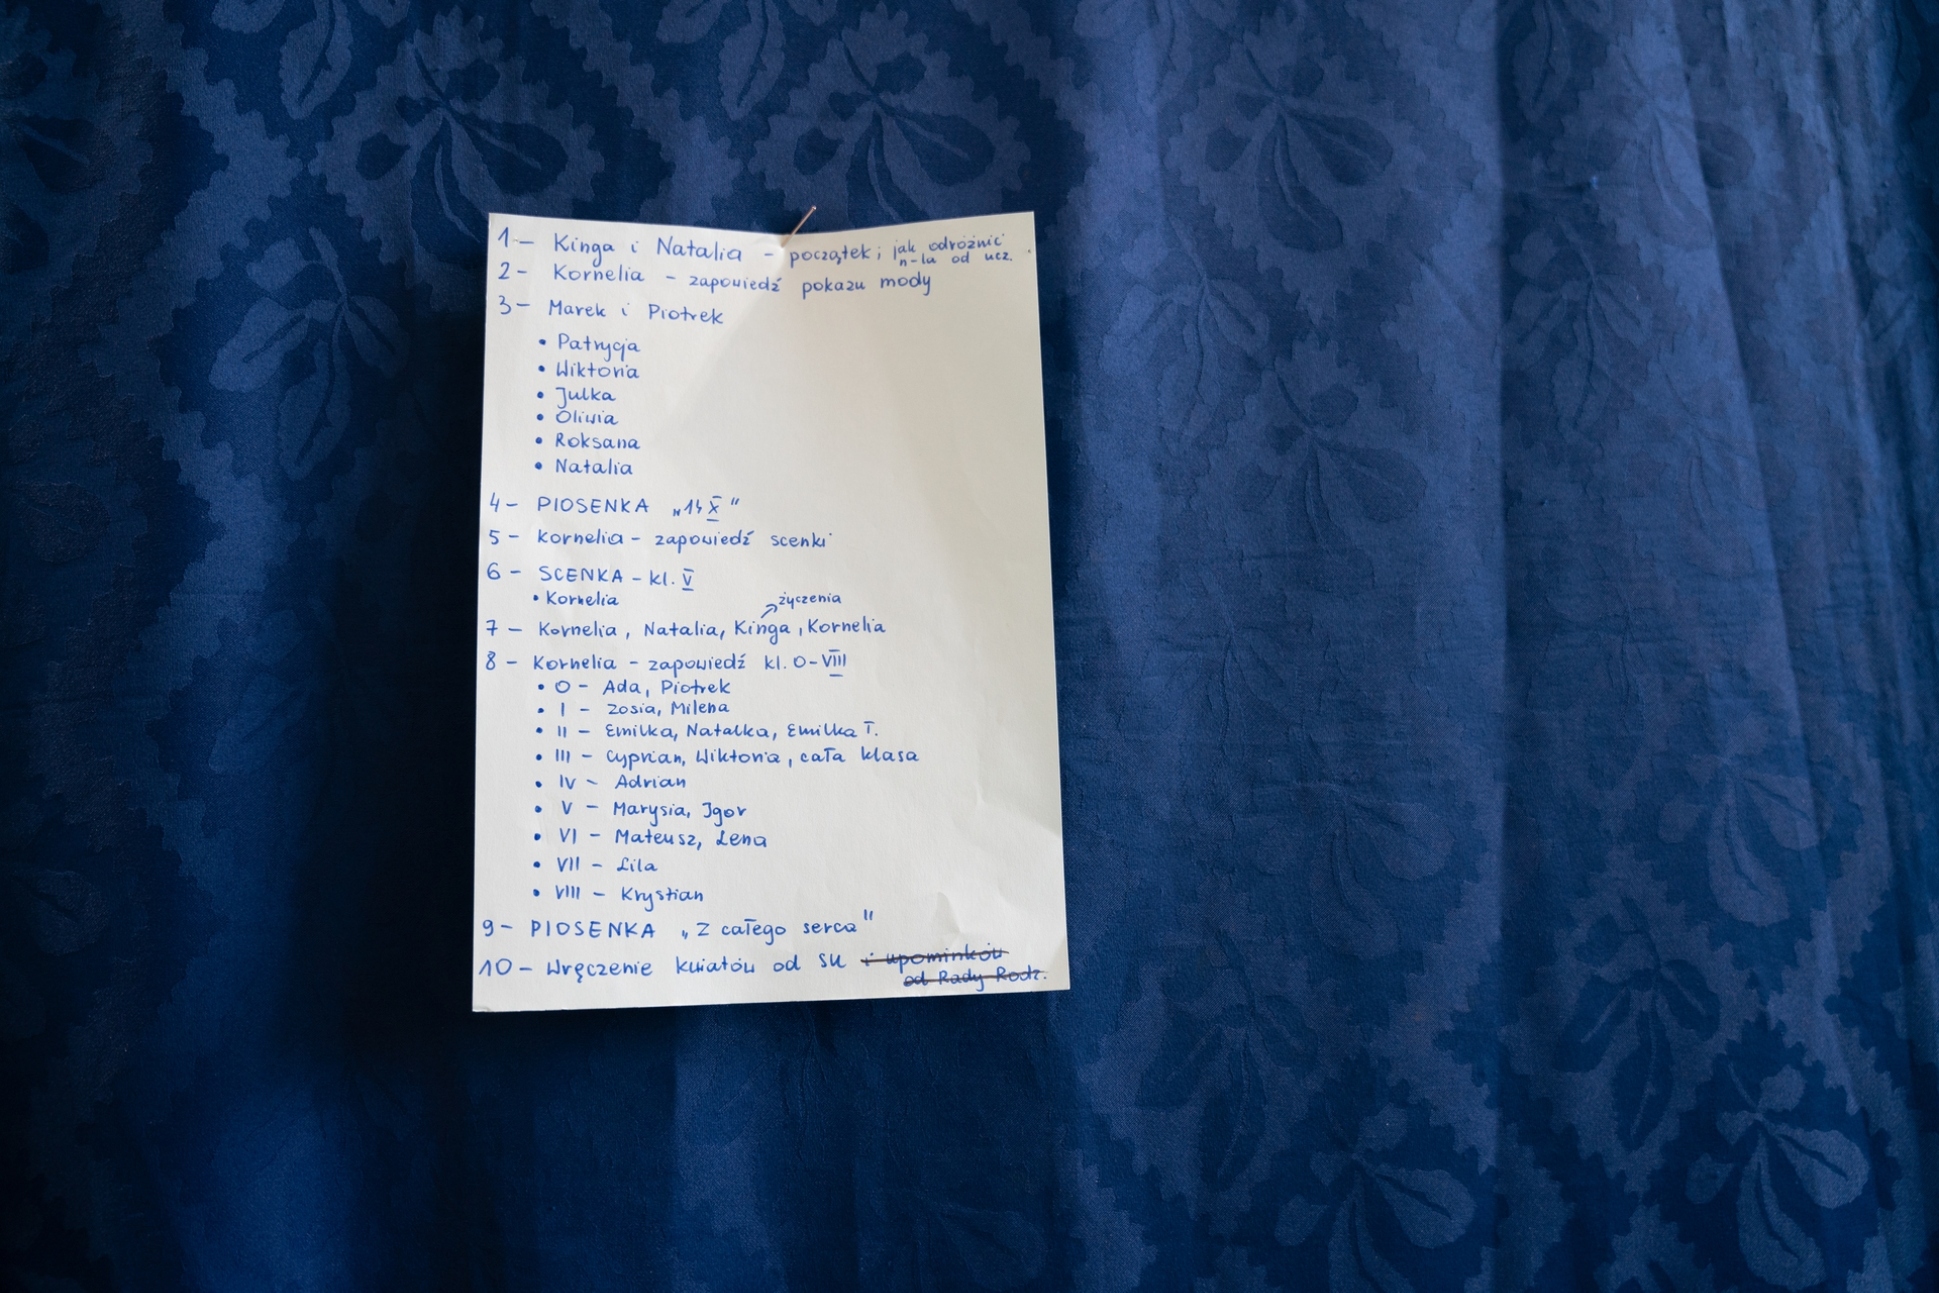 1 – Kinga i Natalia – początek; jak odróżnić
n-la od ucz.
2 – Kornelia – zapowiedź pokazu mody
3 – Marek i Piotrek
• Patrycja
• Wiktoria
• Julka
• Oliwia
• Roksana
• Natalia
4 – PIOSENKA „14 X"
5 – Kornelia – zapowiedź scenki
6 – SCENKA – kl. V
• Kornelia
życzenia
7 – Kornelia, Natalia, Kinga, Kornelia
8 – Kornelia – zapowiedź kl. 0–VIII
• 0 – Ada, Piotrek
• I – Zosia, Milena
• II – Emilka, Natalka, Emilka T.
• III – Cyprian, Wiktoria, cała klasa
• IV – Adrian
• V – Marysia, Igor
• VI – Mateusz, Lena
• VII – Lila
• VIII – Krystian
9 – PIOSENKA „Z całego serca"
10 – Wręczenie kwiatów od SU i upominków
od Rady Rodz.